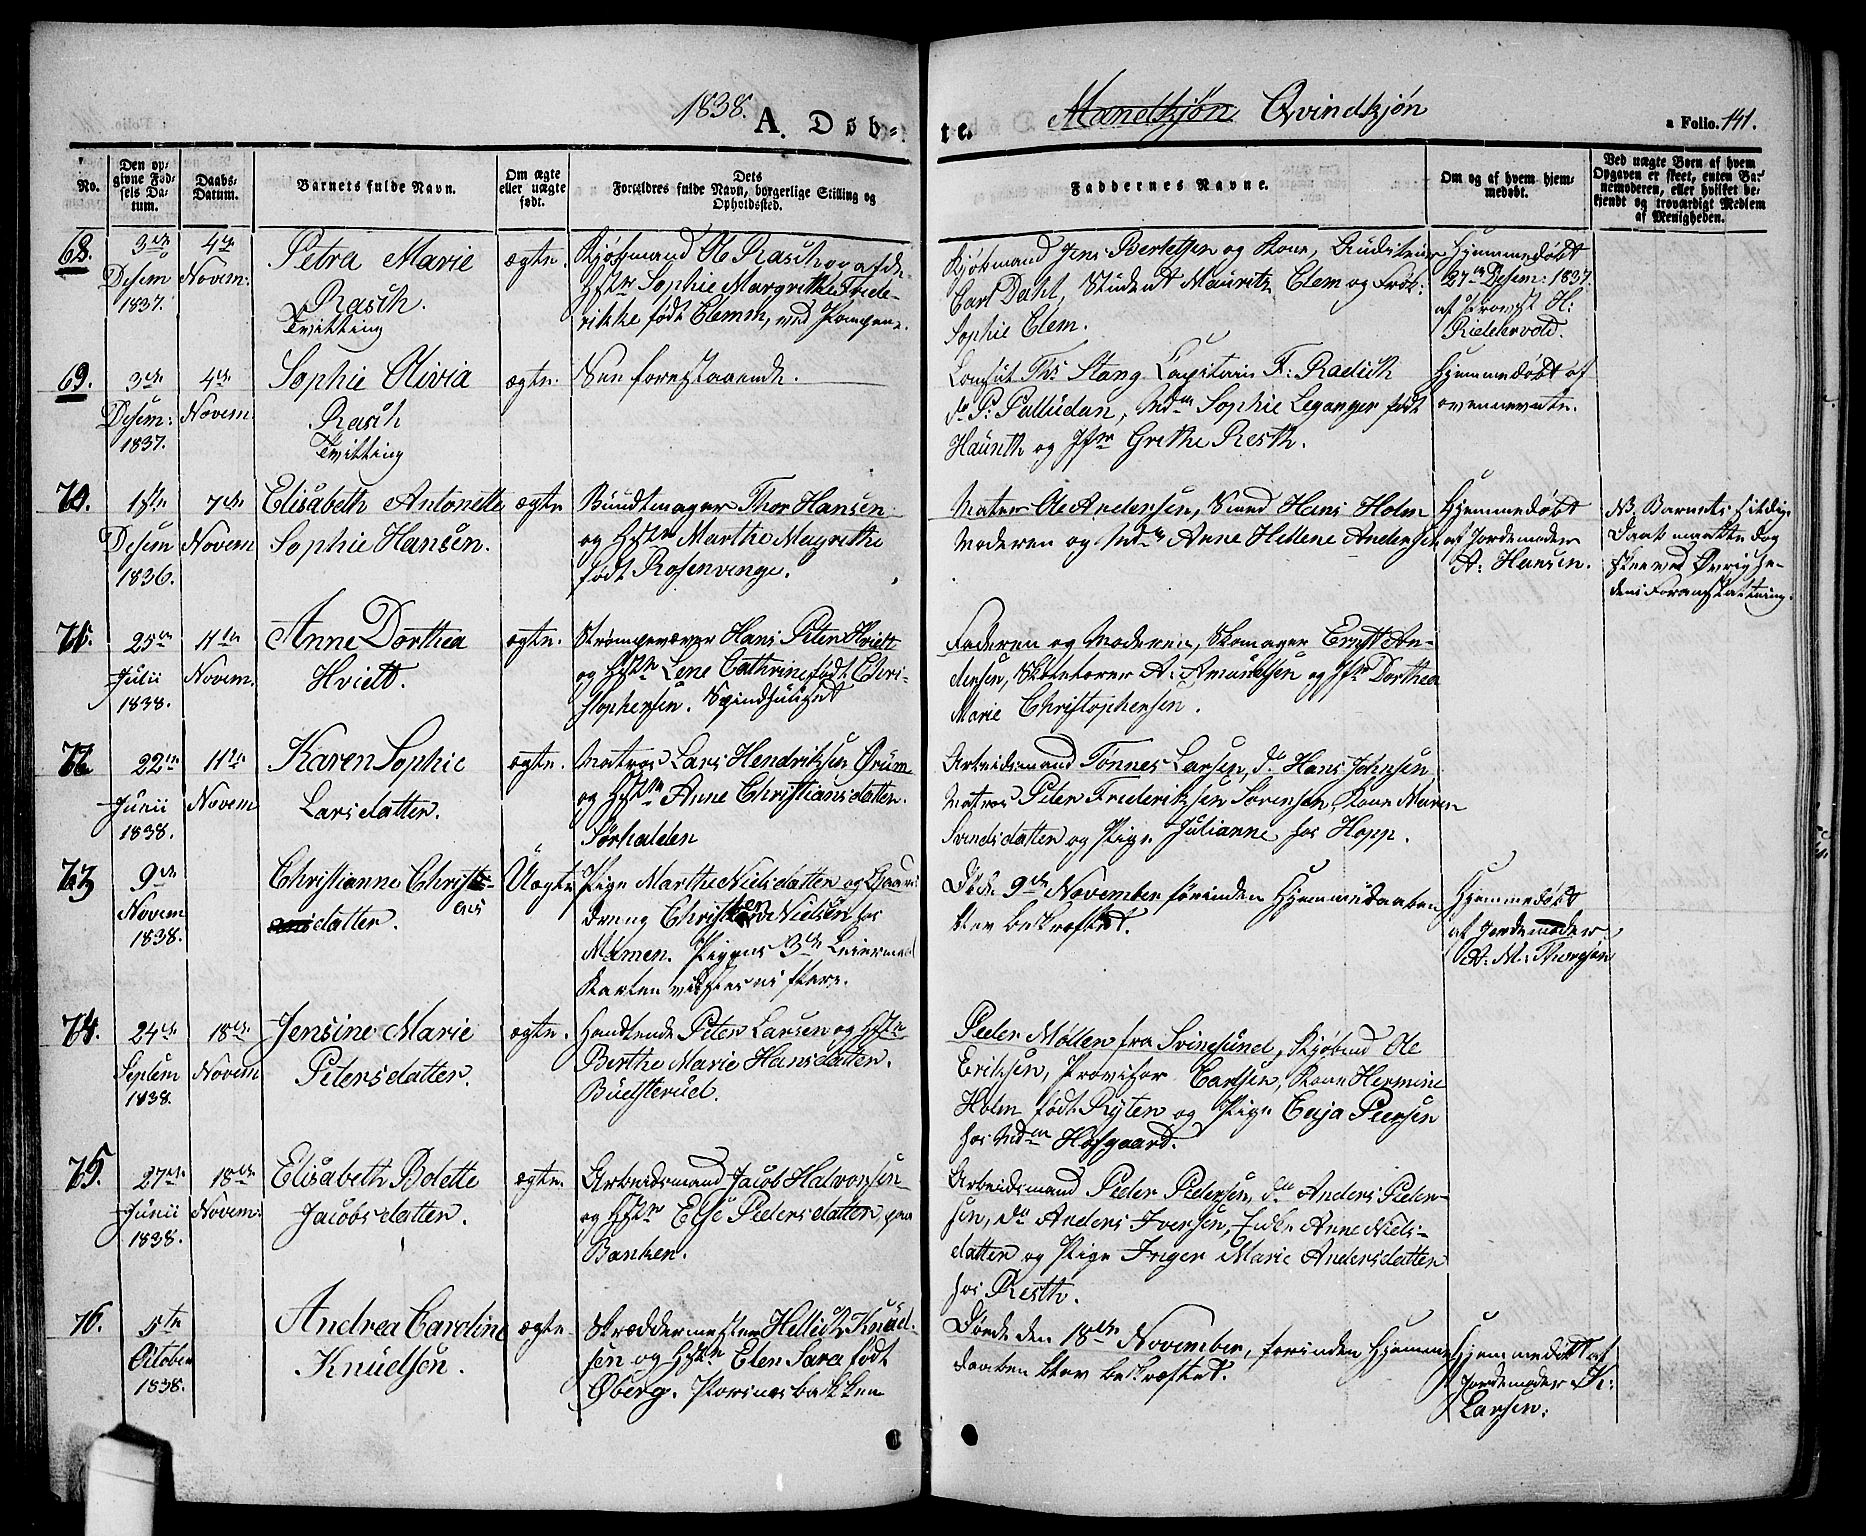 1838.
A. Døb-
te.
Mandkjøn Qvindkjøn
a Folio. 141.
No.
Den op-
givne Fød-
sels Da-
tum.
Daabs-
Datum.
Barnets fulde Navn.
Om ægte
eller uægte
født.
Dets
Forældres fulde Navn, borgerlige Stilling og
Opholdssted.
Faddernes Navne.
Om og af hvem hjem-
medøbt.
Ved uægte Born af hvem
Opgaven er skeet, enten Bar-
nemoderen, eller hvilket be-
kjendt og troværdigt Medlem
af Menigheden.
68.
3die
Desem
1837.
4de
Novem:
Petra Marie
Rasch.
Tvilling
ægte.
Kjøbmand Ole Rasch og afde
Hstr Sophie Margrethe Frede-
rikke født Clemm, ved
Kjøbmand Jens Bertelsen og Kone, Auditeur
Carl Dahl, Student Mauritz Clem og Frøk:
Sophie Clem.
Hjemmedøbt
27de Desem: 1837
af Provst H:
Riddervold.
69.
3die
Desem:
1837.
4de
Novem
Sophie Olivia
Rasch
Tvilling
ægte.
See forestaaende.
Consul Ths Stang Capitain F: Radich
do P: Palludan, Md. Sophie Leganger født
Haurith og Jfr Grethe Resth.
Hjemmedøbt af
ovennevnte.
70.
1ste
Desem
1836.
7de
Novem
Elisabeth Antonette
Sophie Hansen.
ægte
Bundtmager Thor Hansen
og Hstr Marthe Magrethe
født Rosenvinge.
Matros Ole Andersen, Smed Hans Holm
Moderen og Md. Anne Hellene Andersen
Hjemmedøbt
af Jordemoder
A: Hansen.
NB. Barnets sildige
Daab maatte dog
skee ved Øvrighe-
dens Foranstaltning.
71.
25de
Julii
1838.
11te
Novem.
Anne Dorthea
Hvidt.
ægte.
Strømpevæver Hans Peter Hvidt
og Hstr Lene Cathrine født Chri-
stophersen. Spindhuuset
Faderen og Moderen, Skomager Ernst An-
dersen, A: Amundsen og Jfr Dorthea
Marie Christophersen.
72
22de
Junii
1838.
11te
Novem
Karen Sophie
Larsdatter.
ægte.
Matros Lars Hendriksen Ørum
og Hstr Anne Christiansdatter.
Sørhalden
Arbeidsmand Tønnes Larsen, do Hans Johnsen
Matros Peter Frederiksen Sørensen, Kone Maren
Svendsdatter og Pige Julianne hos Hopp.
73
9de
Novem
1838.
Christianne Christi-
ans
datter.
Uægte
Pige Marthe Nielsdatter og Gaard
dreng Christen Nielsen hos
Mamen. Pigens 3de Leiermaal
Karlen vidstes ei flere.
Døde 9de November førinden Hjemmedaaben
blev bekræftet.
Hjemmedøbt
af Jordemoder
A: M: Thoresen
74.
24de
Septem
1838.
18de
Novem
Jensine Marie
Petersdatter.
ægte.
Handlende Peter Larsen og Hstr
Berthe Marie Hansdatter.
Büdsterud.
Peder Møller fra Svinesund, Kjøbmd Ole
Eriksen, Provisor Carlsen, Kone Hermine
Holm født Ryten og Pige Caja Peersen
hos Md. Hofgaard.
75.
27de
Junii
1838.
18de
Novem:
Elisabeth Bolette
Jacobsdatter.
ægte.
Arbeidsmand Jacob Halvorsen
og Hstr Else Pedersdatter, paa
Banken.
Arbeidsmand Peder Pedersen, do Anders Peder-
sen, do Anders Iversen, Enke Anne Niels-
datter og Pige Inger Marie Andersdatter
hos Resth.
76.
5te
October
1838.
Andrea Caroline
Knudsen.
ægte.
Skræddermester Hellich Knud-
sen og Hstr Elen Sara født
Øberg. Porsnesbakken
Døde den 18de November, forinden Hjemme-
daaben blev bekræftet.
Hjemmedøbt af
Jordemoder K:
Larsen.